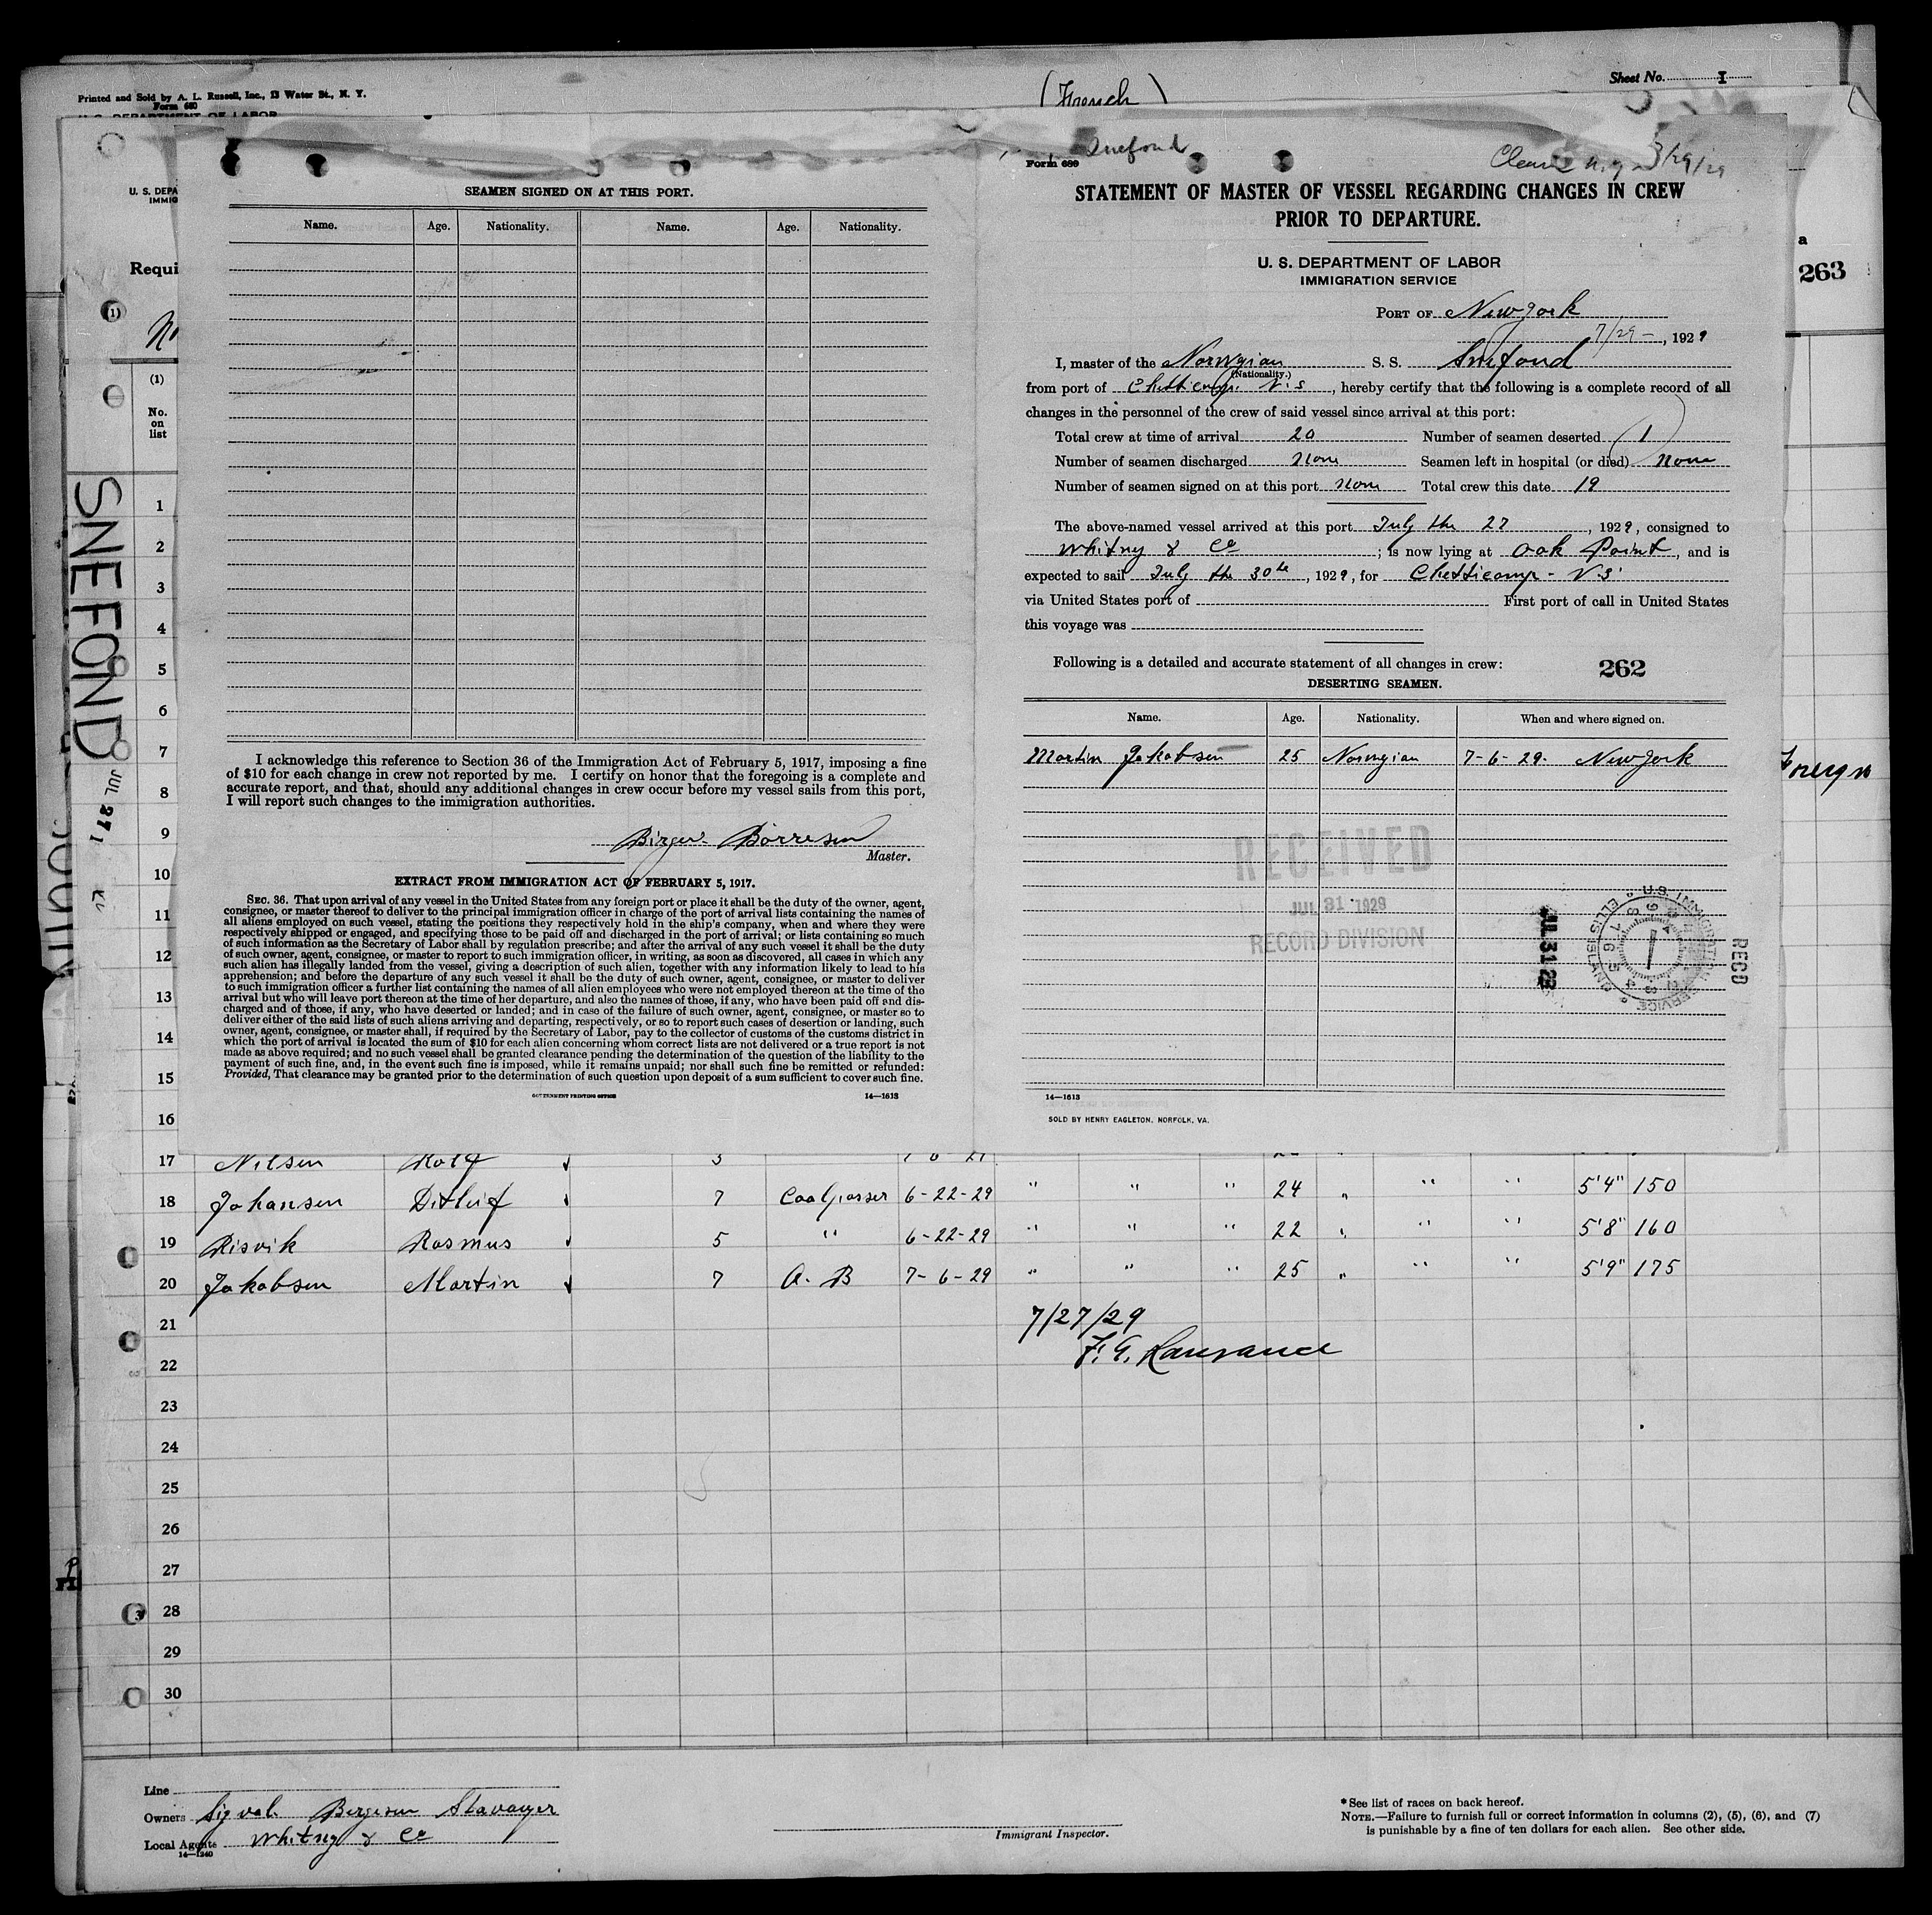 Printed and Sold by A. L. Russell, Inc., 13 Water St., N. Y.
Form 680
U. S. DEPARTMENT OF LABOR
(French)
Sheet No. I
U. S. DEPA
IMMIG
Requi
(1)
(1)
No.
on
list
SNEFOND
JUL 27 1
a
263
Foreign
SEAMEN SIGNED ON AT THIS PORT.
Name. Age. Nationality. Name. Age. Nationality.
I acknowledge this reference to Section 36 of the Immigration Act of February 5, 1917, imposing a fine
of $10 for each change in crew not reported by me. I certify on honor that the foregoing is a complete and
accurate report, and that, should any additional changes in crew occur before my vessel sails from this port,
I will report such changes to the immigration authorities.
Birger Börresen
Master.
EXTRACT FROM IMMIGRATION ACT OF FEBRUARY 5, 1917.
SEC. 36. That upon arrival of any vessel in the United States from any foreign port or place it shall be the duty of the owner, agent,
consignee, or master thereof to deliver to the principal immigration officer in charge of the port of arrival lists containing the names of
all aliens employed on such vessel, stating the positions they respectively hold in the ship's company, when and where they were
respectively shipped or engaged, and specifying those to be paid off and discharged in the port of arrival; or lists containing so much
of such information as the Secretary of Labor shall by regulation prescribe; and after the arrival of any such vessel it shall be the duty
of such owner, agent, consignee, or master to report to such immigration officer, in writing, as soon as discovered, all cases in which any
such alien has illegally landed from the vessel, giving a description of such alien, together with any information likely to lead to his
apprehension; and before the departure of any such vessel it shall be the duty of such owner, agent, consignee, or master to deliver
to such immigration officer a further list containing the names of all alien employees who were not employed thereon at the time of the
arrival but who will leave port thereon at the time of her departure, and also the names of those, if any, who have been paid off and dis-
charged and of those, if any, who have deserted or landed; and in case of the failure of such owner, agent, consignee, or master so to
deliver either of the said lists of such aliens arriving and departing, respectively, or so to report such cases of desertion or landing, such
owner, agent, consignee, or master shall, if required by the Secretary of Labor, pay to the collector of customs of the customs district in
which the port of arrival is located the sum of $10 for each alien concerning whom correct lists are not delivered or a true report is not
made as above required; and no such vessel shall be granted clearance pending the determination of the question of the liability to the
payment of such fine, and, in the event such fine is imposed, while it remains unpaid; nor shall such fine be remitted or refunded:
Provided, That clearance may be granted prior to the determination of such question upon deposit of a sum sufficient to cover such fine.
GOVERNMENT PRINTING OFFICE 14—1613
Snefond
Form 689
7/29/29
STATEMENT OF MASTER OF VESSEL REGARDING CHANGES IN CREW
PRIOR TO DEPARTURE.
U. S. DEPARTMENT OF LABOR
IMMIGRATION SERVICE
PORT OF New York
7/29 -, 1929
I, master of the Norwgian S. S. Snefond
(Nationality.)
from port of Chetticamp. N.S, hereby certify that the following is a complete record of all
changes in the personnel of the crew of said vessel since arrival at this port:
Total crew at time of arrival 20 Number of seamen deserted 1
Number of seamen discharged none Seamen left in hospital (or died) none
Number of seamen signed on at this port none Total crew this date 19
The above-named vessel arrived at this port July the 27, 1929, consigned to
Whitny & Co; is now lying at Oak Point, and is
expected to sail July the 30th, 1929, for Chetticamp - N.S.
via United States port of First port of call in United States
this voyage was
Following is a detailed and accurate statement of all changes in crew: 262
DESERTING SEAMEN.
Name. Age. Nationality. When and where signed on.
Martin Jakobsen 25 Norwgian 7-6-29. New York
RECEIVED
JUL 31 1929
RECORD DIVISION
JUL 31 29
U.S. IMMIGRATION SERVICE ELLIS ISLAND
RECD
14—1613
SOLD BY HENRY EAGLETON, NORFOLK, VA.
1
2
3
4
5
6
7
8
9
10
11
12
13
14
15
16
17 Nilsen Rolf
18 Johansen Ditleif 7 Coalpasser 6-22-29 " " " 24 " " " 5'4" 150
19 Risvik Rasmus 5 " 6-22-29 " " " 22 " " " 5'8" 160
20 Jakobsen Martin 7 A. B 7-6-29 " " " 25 " " " 5'9" 175
21 7/27/29
22
23
24
25
26
27
28
29
30
Line
Owners Sigval Bergesen Stavanger
Local Agents Whitny & Co
14—1240
Immigrant Inspector.
* See list of races on back hereof.
NOTE.—Failure to furnish full or correct information in columns (2), (5), (6), and (7)
is punishable by a fine of ten dollars for each alien. See other side.